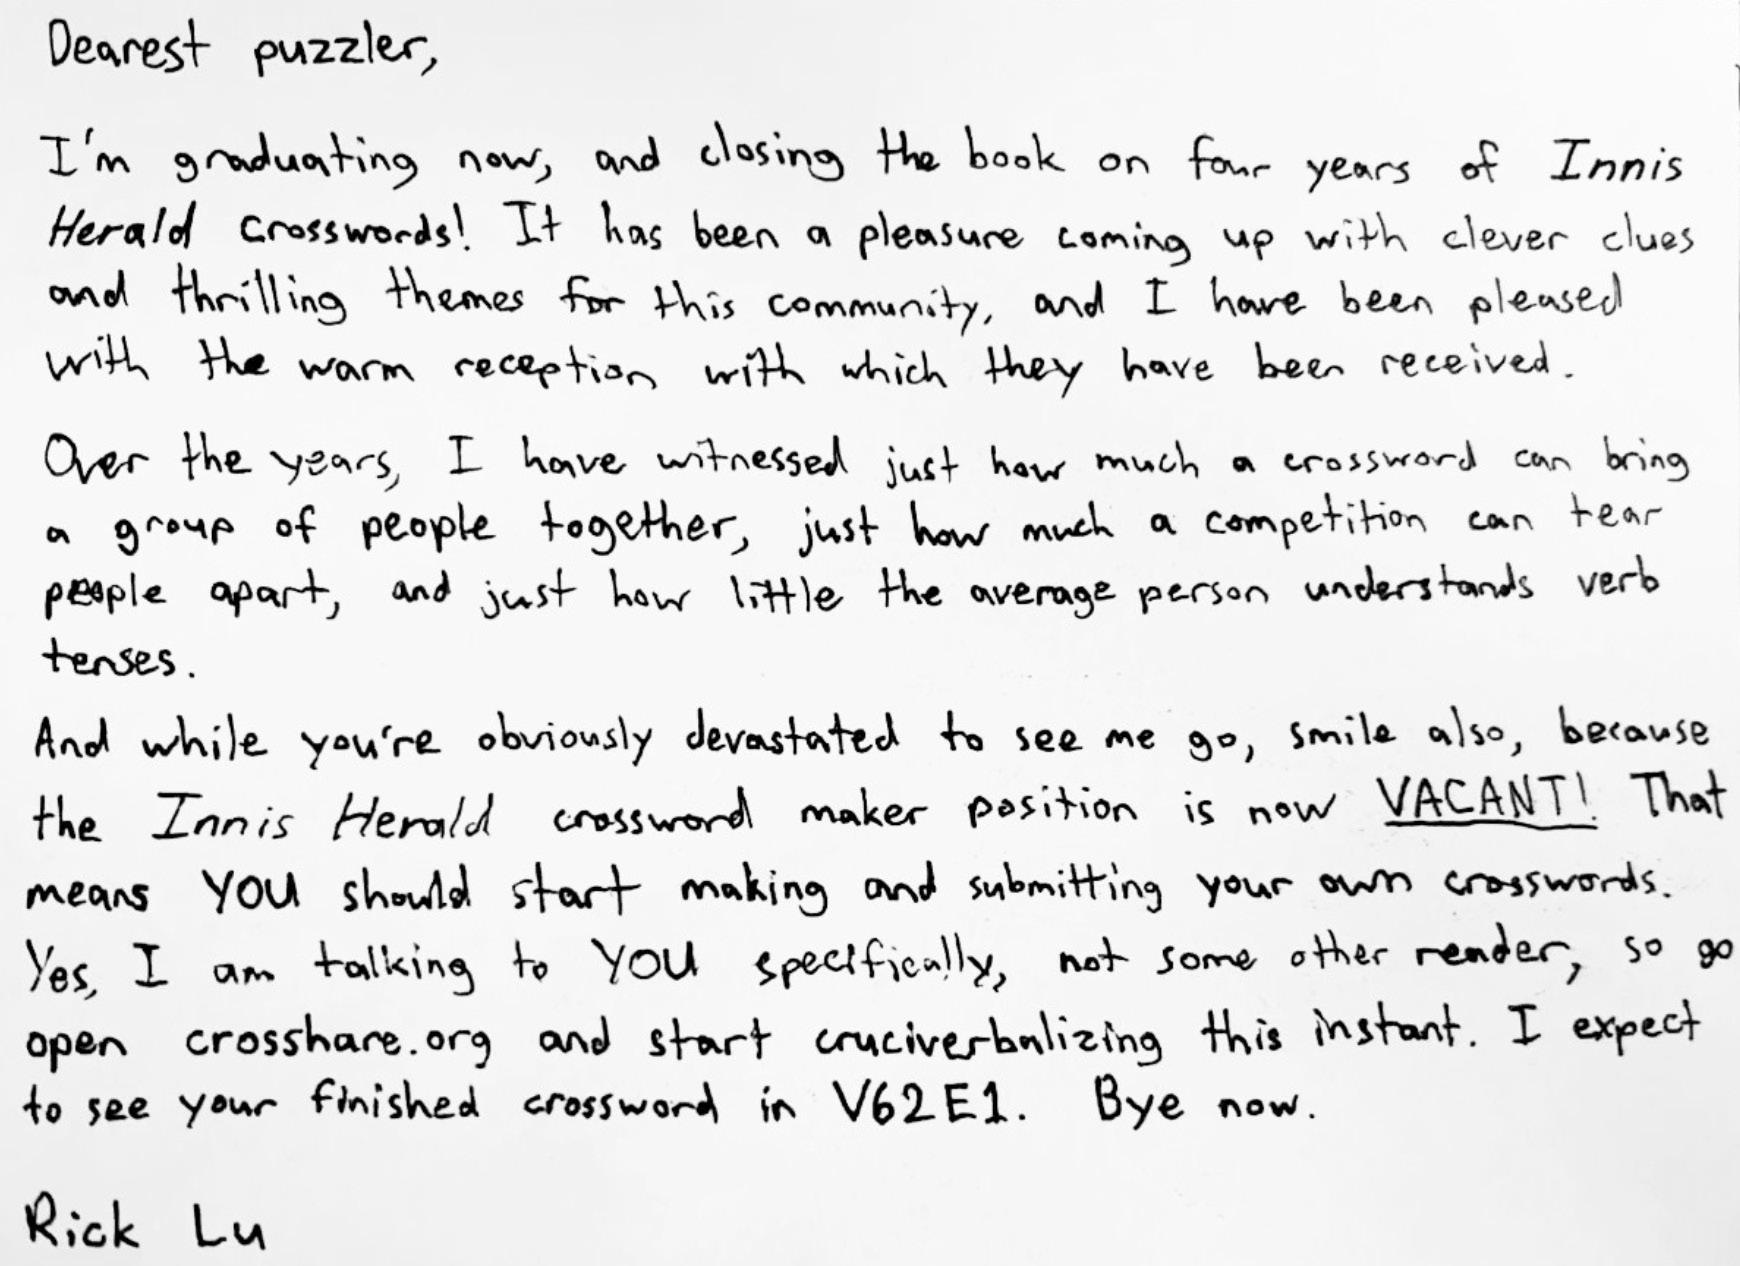 Dearest puzzler,
I'm graduating now, and closing the book on four years of Innis
Herald crosswords! It has been a pleasure coming up with clever clues
and thrilling themes for this community, and I have been pleased
with the warm reception with which they have been received.
Over the years, I have witnessed just how much a crossword can bring
a group of people together, just how much a competition can tear
people apart, and just how little the average person understands verb
tenses.
And while you're obviously devastated to see me go, smile also, because
the Innis Herald crossword maker position is now VACANT! That
means YOU should start making and submitting your own crosswords.
Yes, I am talking to YOU specifically, not some other reader, so go
open crosshare.org and start cruciverbalizing this instant. I expect
to see your finished crossword in V62E1. Bye now.
Rick Lu